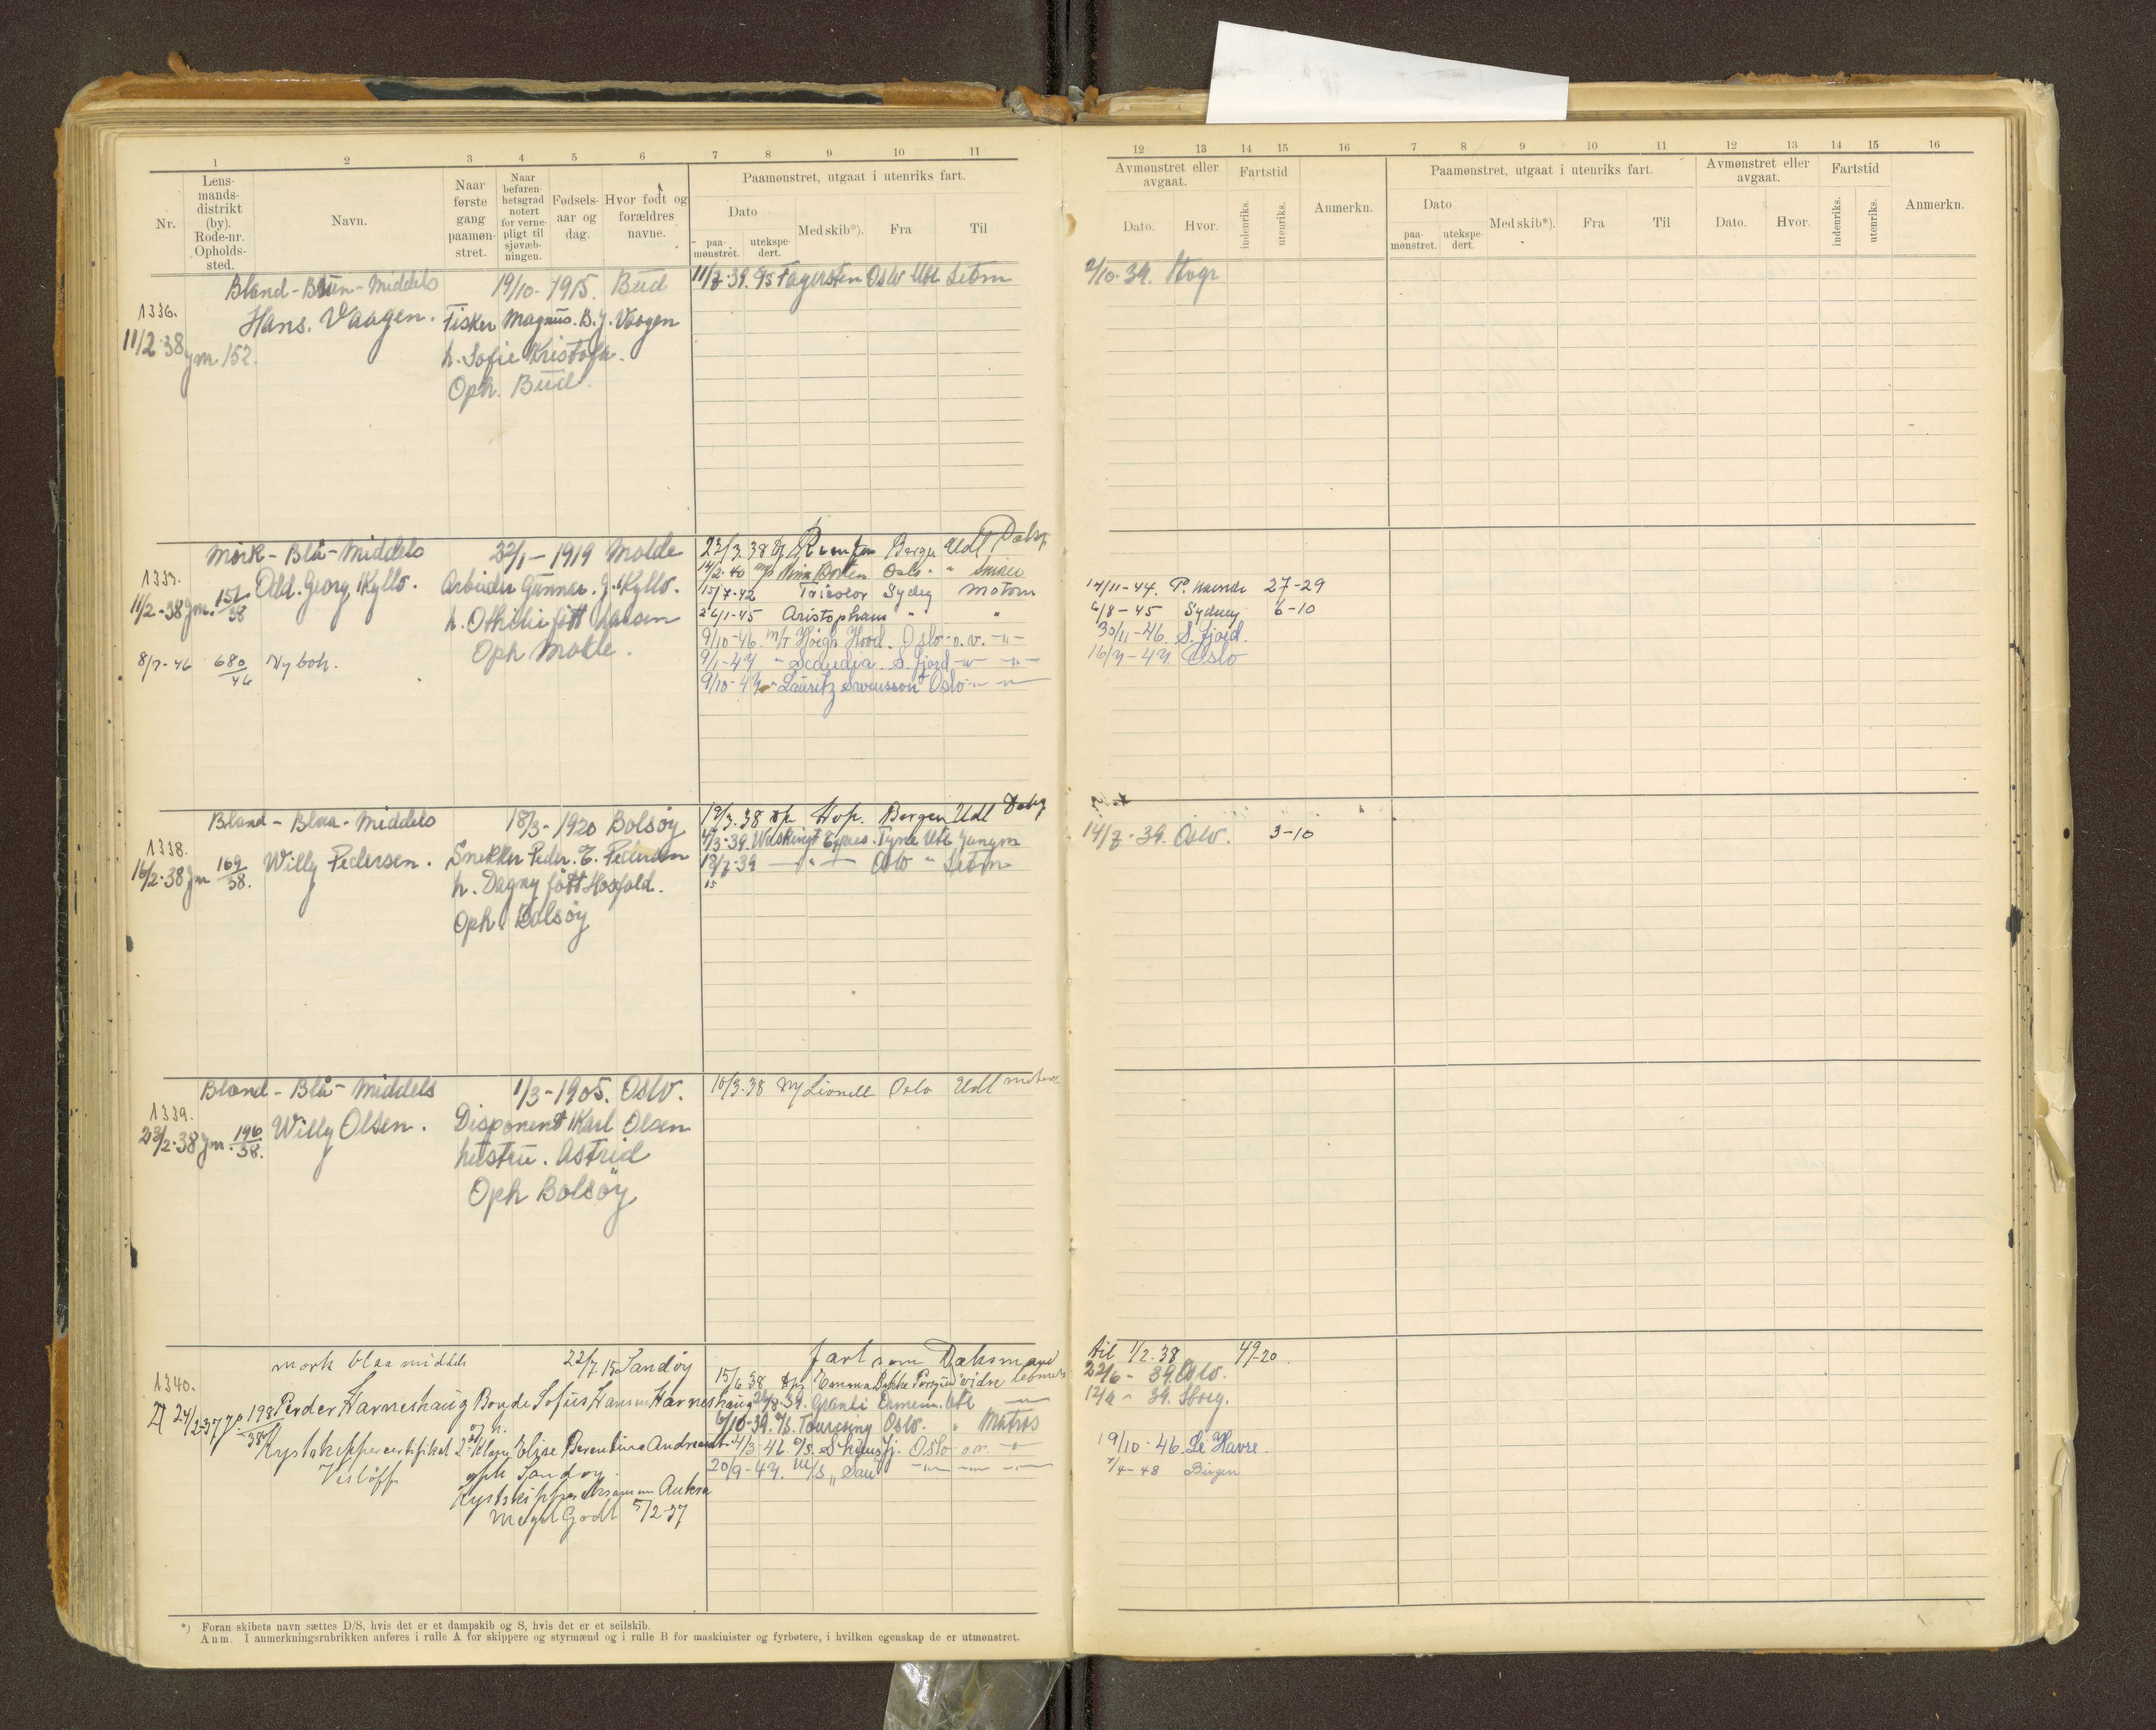 1 2 3 4 5 6 7 8 9 10 11
Nr.
Lens-
mands-
distrikt
(by).
Rode-nr.
Opholds-
sted.
Navn.
Naar
første
gang
paamøn-
stret.
Naar
befaren-
hetsgrad
notert
for verne-
pligt til
sjøvæb-
ningen.
Fødsels-
aar og
dag.
Hvor født og
forældres
navne.
Paamønstret, utgaat i utenriks fart.
Dato
paa-
mønstret.
utekspe-
dert.
Med skib*).
Fra
Til
12 13 14 15 16 7 8 9 10 11 12 13 14 15 16
Avmønstret eller
avgaat.
Dato.
Hvor.
Fartstid
indenriks.
utenriks.
Anmerkn.
Paamønstret, utgaat i utenriks fart.
Dato
paa-
mønstret.
utekspe-
dert.
Med skib*).
Fra
Til
Avmønstret eller
avgaat.
Dato.
Hvor.
Fartstid
indenriks.
utenriks.
Anmerkn.
Bland - Brun - Middels 19/10 - 1915. Bud
1336. Hans. Vaagen. Fisker Magnus. B. J. Vaagen
11/2-38 jm 152. h. Sofie Kristofa.
Oph. Bud.
Fagersten Oslo Utl Letm
2/10-39.
Mörk - Blå - Middels 22/1 - 1919 Molde
1337. Odd. Georg Kyllo. Arbeider Gunnar. J. Kyllo.
11/2-38 jm. 151/38 h. Othilie fött Larsen
Oph Molde.
8/7-46 680/46 Ny boh.
23/3.38 Bergen Utl
14/2-40 Oslo "
15/7-42 Tricolor Sydny Motorm
26/1-45 Aristophans " "
9/10-46. m/t Höegh Hood. Oslo - o.v. -"-
9/1-47 " Scandia. S. fjord -"- -"-
9/10-47 - Lauritz Swensson Oslo -"- -"-
17/11-44. 27-29
6/8-45 Sydney 6-10
30/11-46. S. fjord.
16/7-47 Oslo
Bland - Blaa - Middels 18/3 - 1920 Bolsøy
1338. Willy Pedersen. Snekker Peder. E. Pedersen
16/2-38 jm 169/38. h. Dagny fött Hosfald.
Oph. Bolsöy
19/3.38 Hop. Bergen Utl
4/3-39. Washingt Expres. Tyne Utl Jungm
18/7-39 -"- Oslo " Letm
14/7-39. Oslo. 3-10
Bland - Blå - Middels 1/3 - 1905. Oslo.
1339. Willy Olsen. Disponent Karl Olsen
23/2-38 jm. 196/38. hustru. Astrid
Oph Bolsöy
10/3.38 Lionell Oslo Utl
mork blaa middels 22/7 15 Sandöy
1340. Peder Harneshaug Bonde Sofus Hansen Harneshaug
24/2-37 198/38 og h.
Kystskippercertifikat 2. Klasse Elise Berentine Andreasdtr
oph Sandøy.
Kystskippereksamen Aukra
Meget Godt 5/2-37
fart som Dæksmand til 1/2.38 49-20.
15/6 38 Emma Bakke
Granli Utl -"-
6/10-39. D/S. Tourcoing Oslo. " Matros
4/3-46. Oslo o.v. -"-
20/9-47. M/S "Dau" -"- -"- -"-
22/6 - 39. Oslo.
39. Sborg.
19/10-46. Le Havre.
7/4-48 Bergen
*) Foran skibets navn sættes D/S, hvis det er et dampskib og S, hvis det er et seilskib.
Anm. I anmerkningsrubrikken anføres i rulle A for skippere og styrmænd og i rulle B for maskinister og fyrbøtere, i hvilken egenskap de er utmønstret.